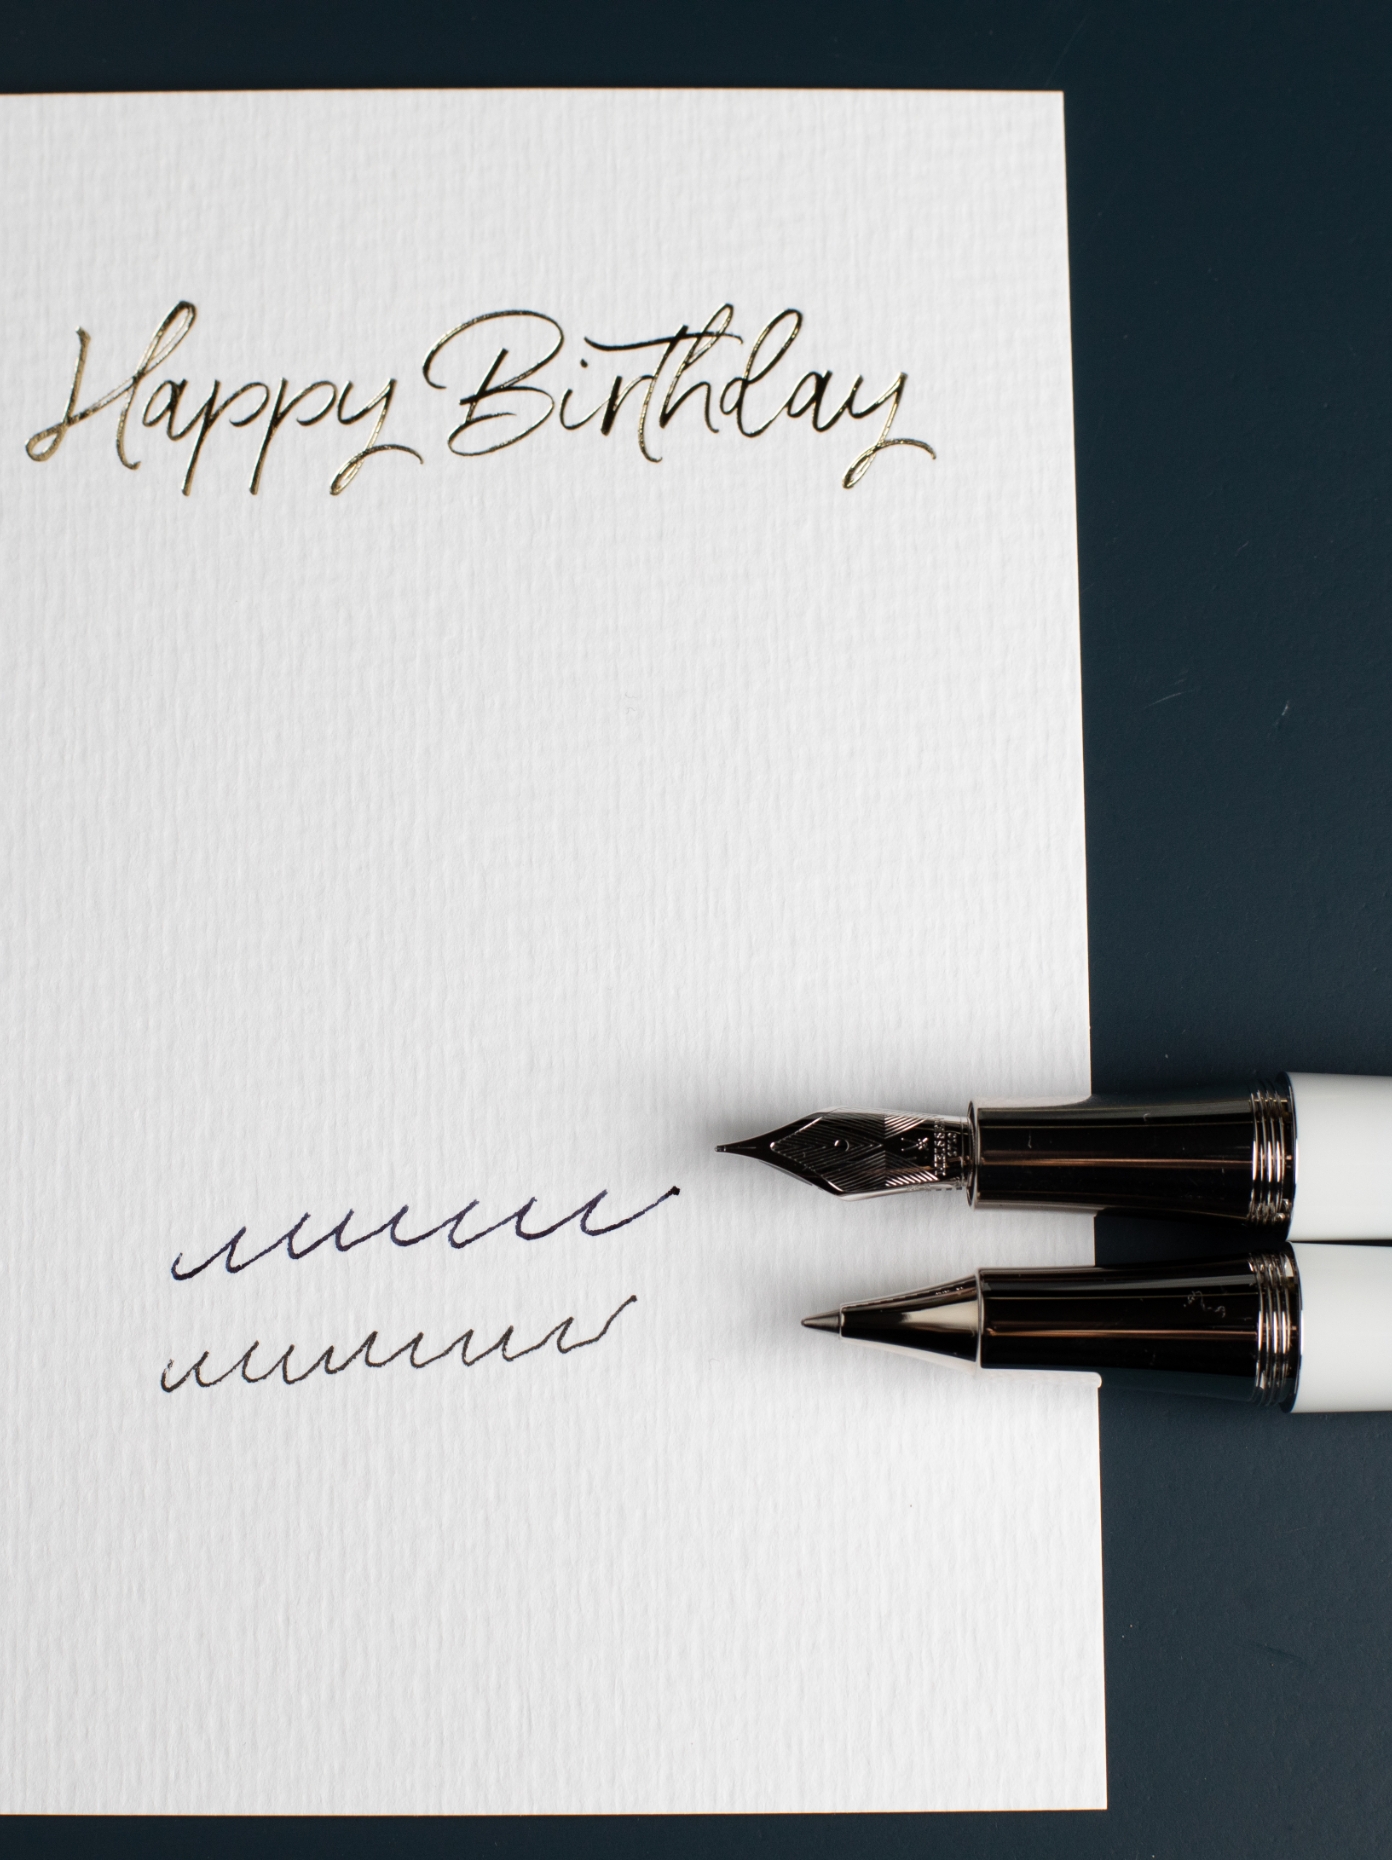 Happy Birthday